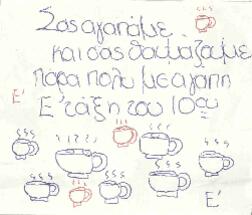 Σας αγαπάμε
και σας θαυμάζουμε
πάρα πολύ με αγάπη
Ε' τάξη του 10ου
Ε'
Ε'